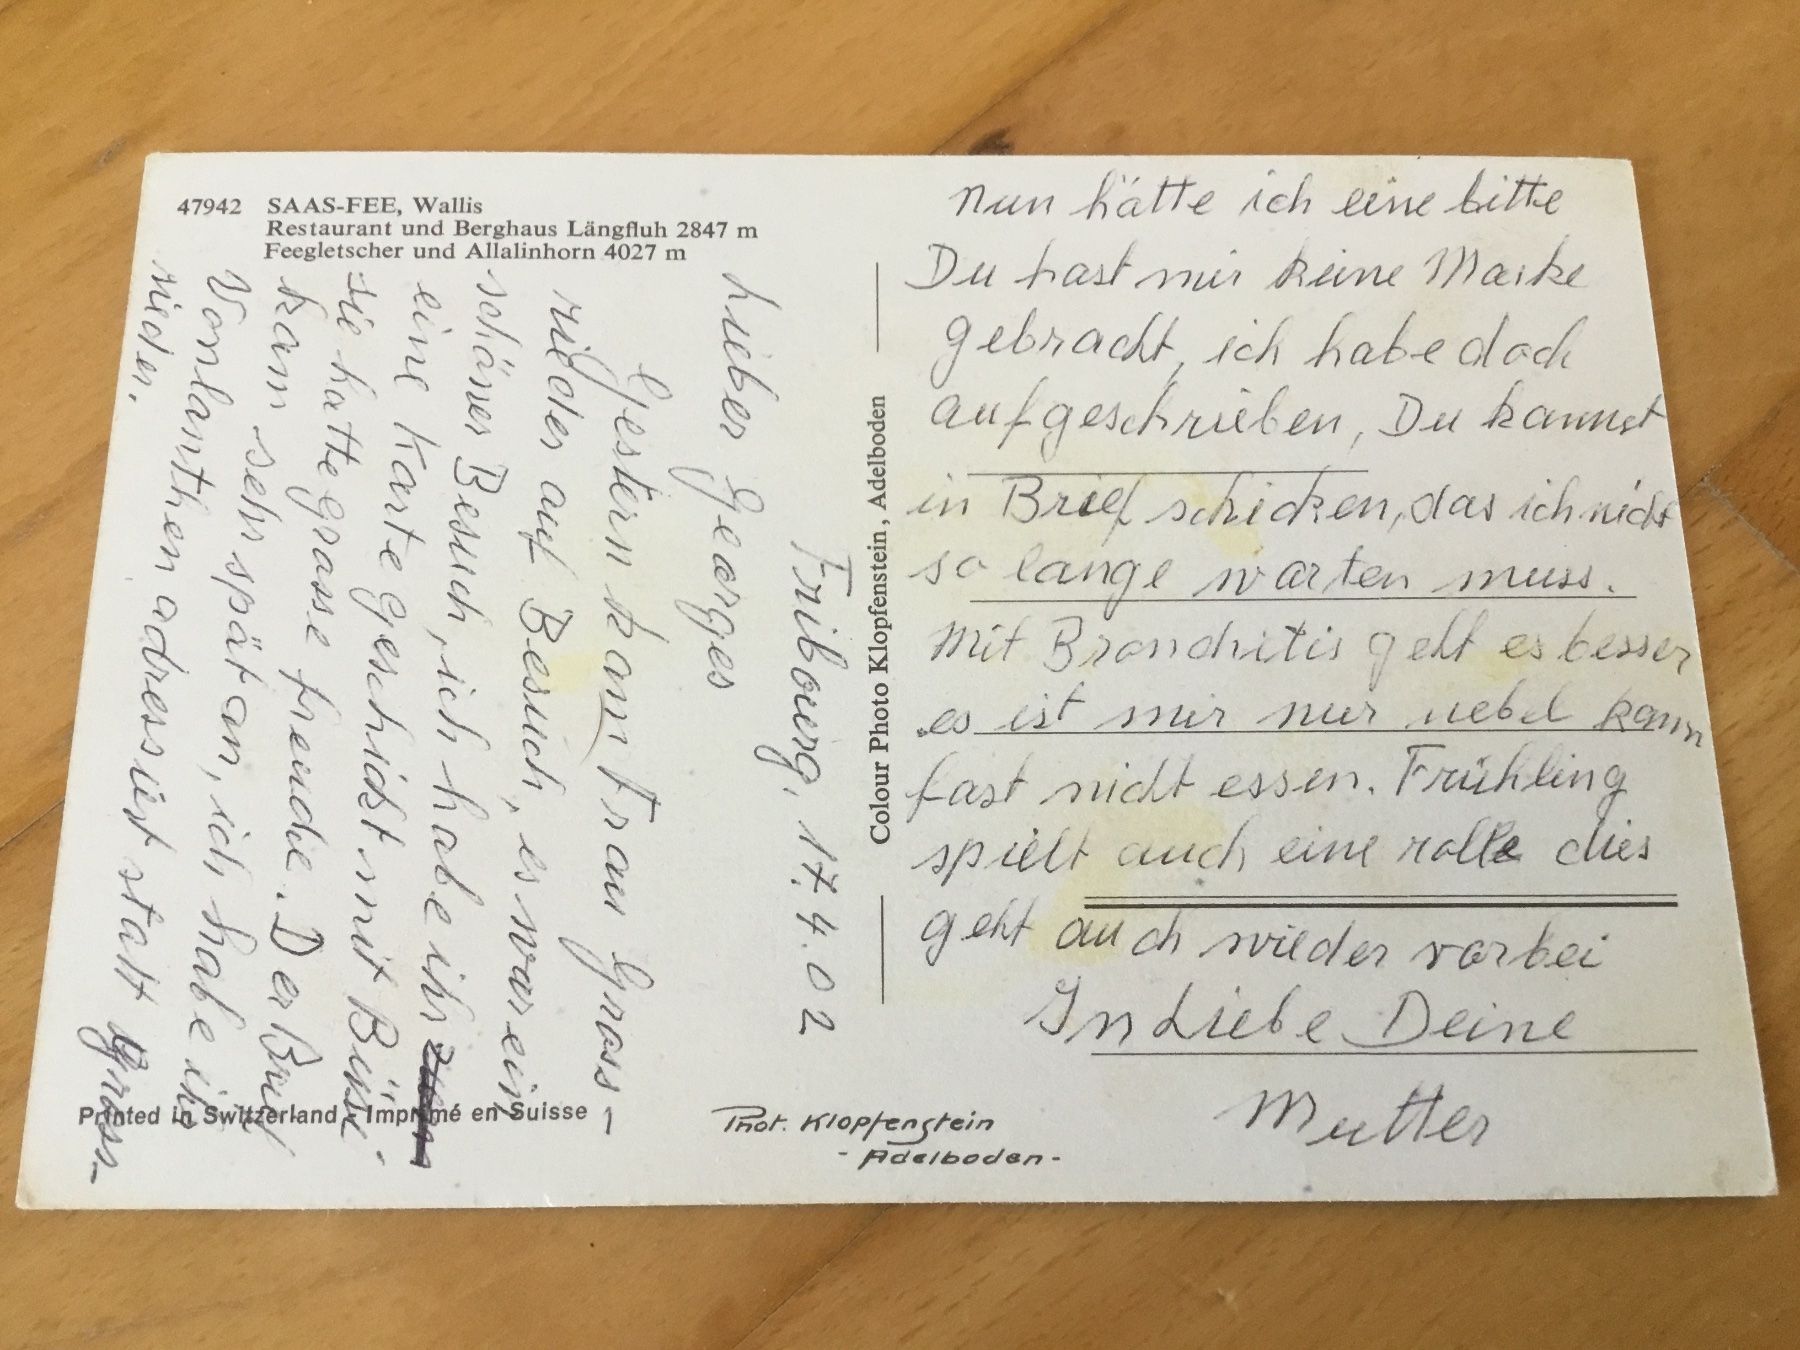 47942 SAAS-FEE, Wallis
Restaurant und Berghaus Längfluh 2847 m
Feegletscher und Allalinhorn 4027 m
Fribourg, 17.4.02
Lieber Georges
Gestern kam Frau Gros-
rieder auf Besuch, es war ein
schöner Besuch, ich habe ihr
eine Karte geschickt mit Büsi
sie hatte grosse freude. Der Brief
kam sehr spät an, ich habe ih
Vonlanthen adressiert statt Gross-
rieder.
Printed in Switzerland - Imprimé en Suisse
Phot. Klopfenstein
- Adelboden -
Colour Photo Klopfenstein, Adelboden
Nun hätte ich eine bitte
Du hast mir keine Marke
gebracht, ich habe doch
aufgeschrieben, Du kannst
in Brief schicken, das ich nicht
so lange warten muss.
Mit Bronchitis geht es besser
es ist mir nur uebel kann
fast nicht essen. Frühling
spielt auch eine rolle dies
geht auch wieder vorbei
In Liebe Deine
Mutter